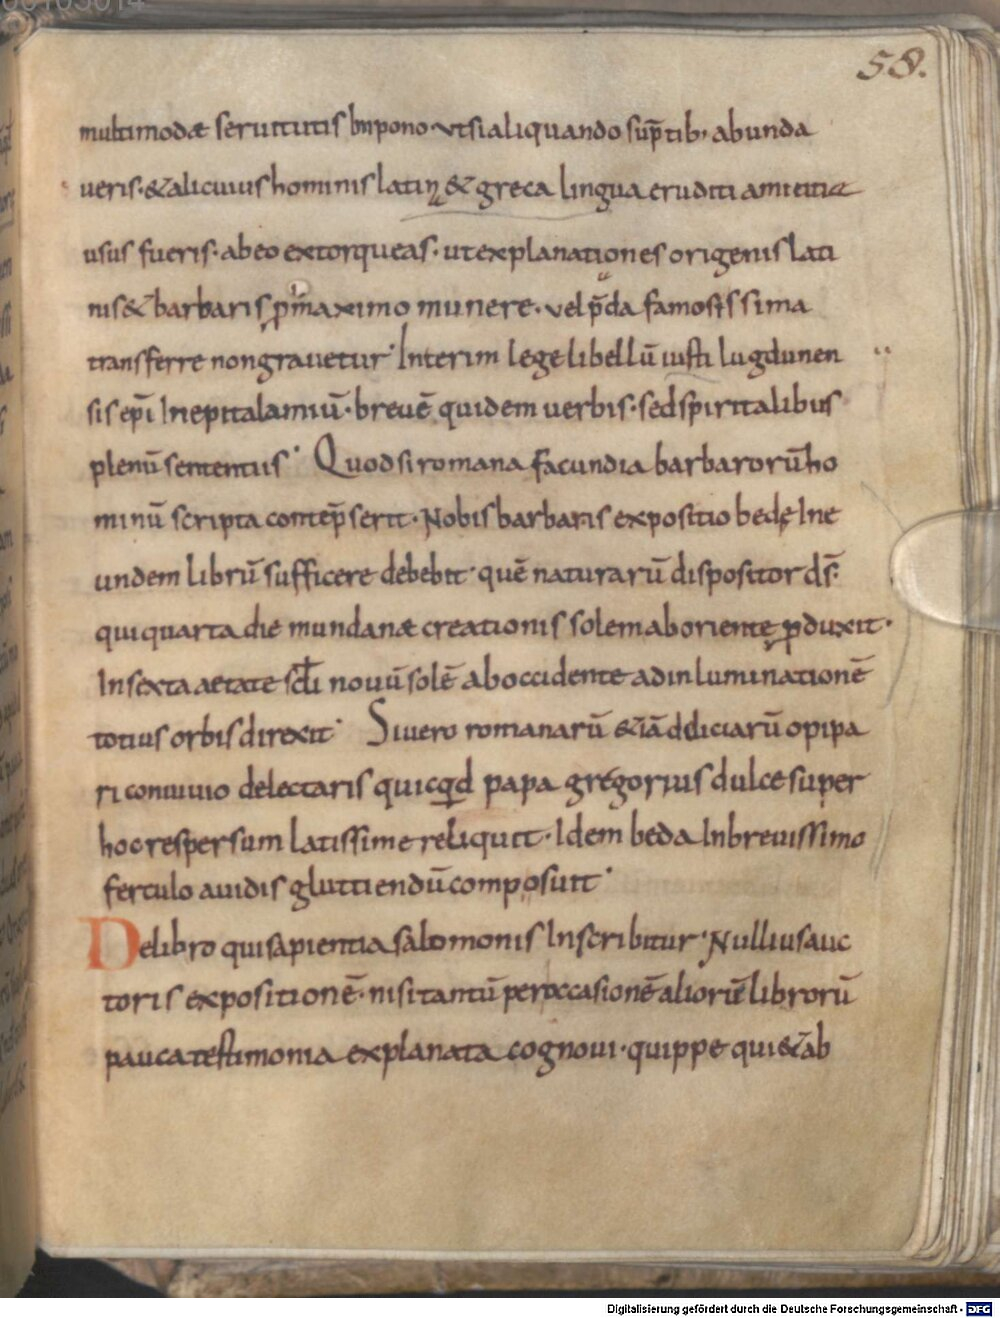 58.
multimodæ seruitutis Inpono· vtsialiquando sūptib; abunda
ueris·&alicuiushominislatinę & greca lingua eruditi amicitiæ
usus fueris· abeo extorqueas· utexplanationes origenis lati
nis& barbaris p̄maximo munere· vel p̄da famosissima
transferre nongrauetur· Interim lege libellū iusti lugdunen
sis ep̄i Inepitalamiū· breuē quidem uerbis· sedspiritalibus
plenū sententiis· Quodsiromana facundia barbarorūho
minū scripta contēpserit· Nobis barbaris expositio bedę Ine
undem librū sufficere debebit· quē naturarū dispositor ds̄·
quiquarta die mundanæ creationis solemaboriente ꝓduxit·
Insexta aetate scł̄i nouū solē aboccidente adinluminationē
totius orbisdirexit· Siuero romanarū &iā ddiciarū opipa
ri conuiuio delectaris quicqd papa gregorius dulce super
hocrespersum latissime reliquit· Idem beda Inbreuissimo
ferculo auidis gluttiendū composuit·
Delibro quisapientia salomonis Inscribitur· Nulliusauc
toris expositionē· nisi tantū peroccasionē aliorū librorū
pauca testimonia explanata cognoui· quippe qui&ab
Digitalisierung gefördert durch die Deutsche Forschungsgemeinschaft - DFG